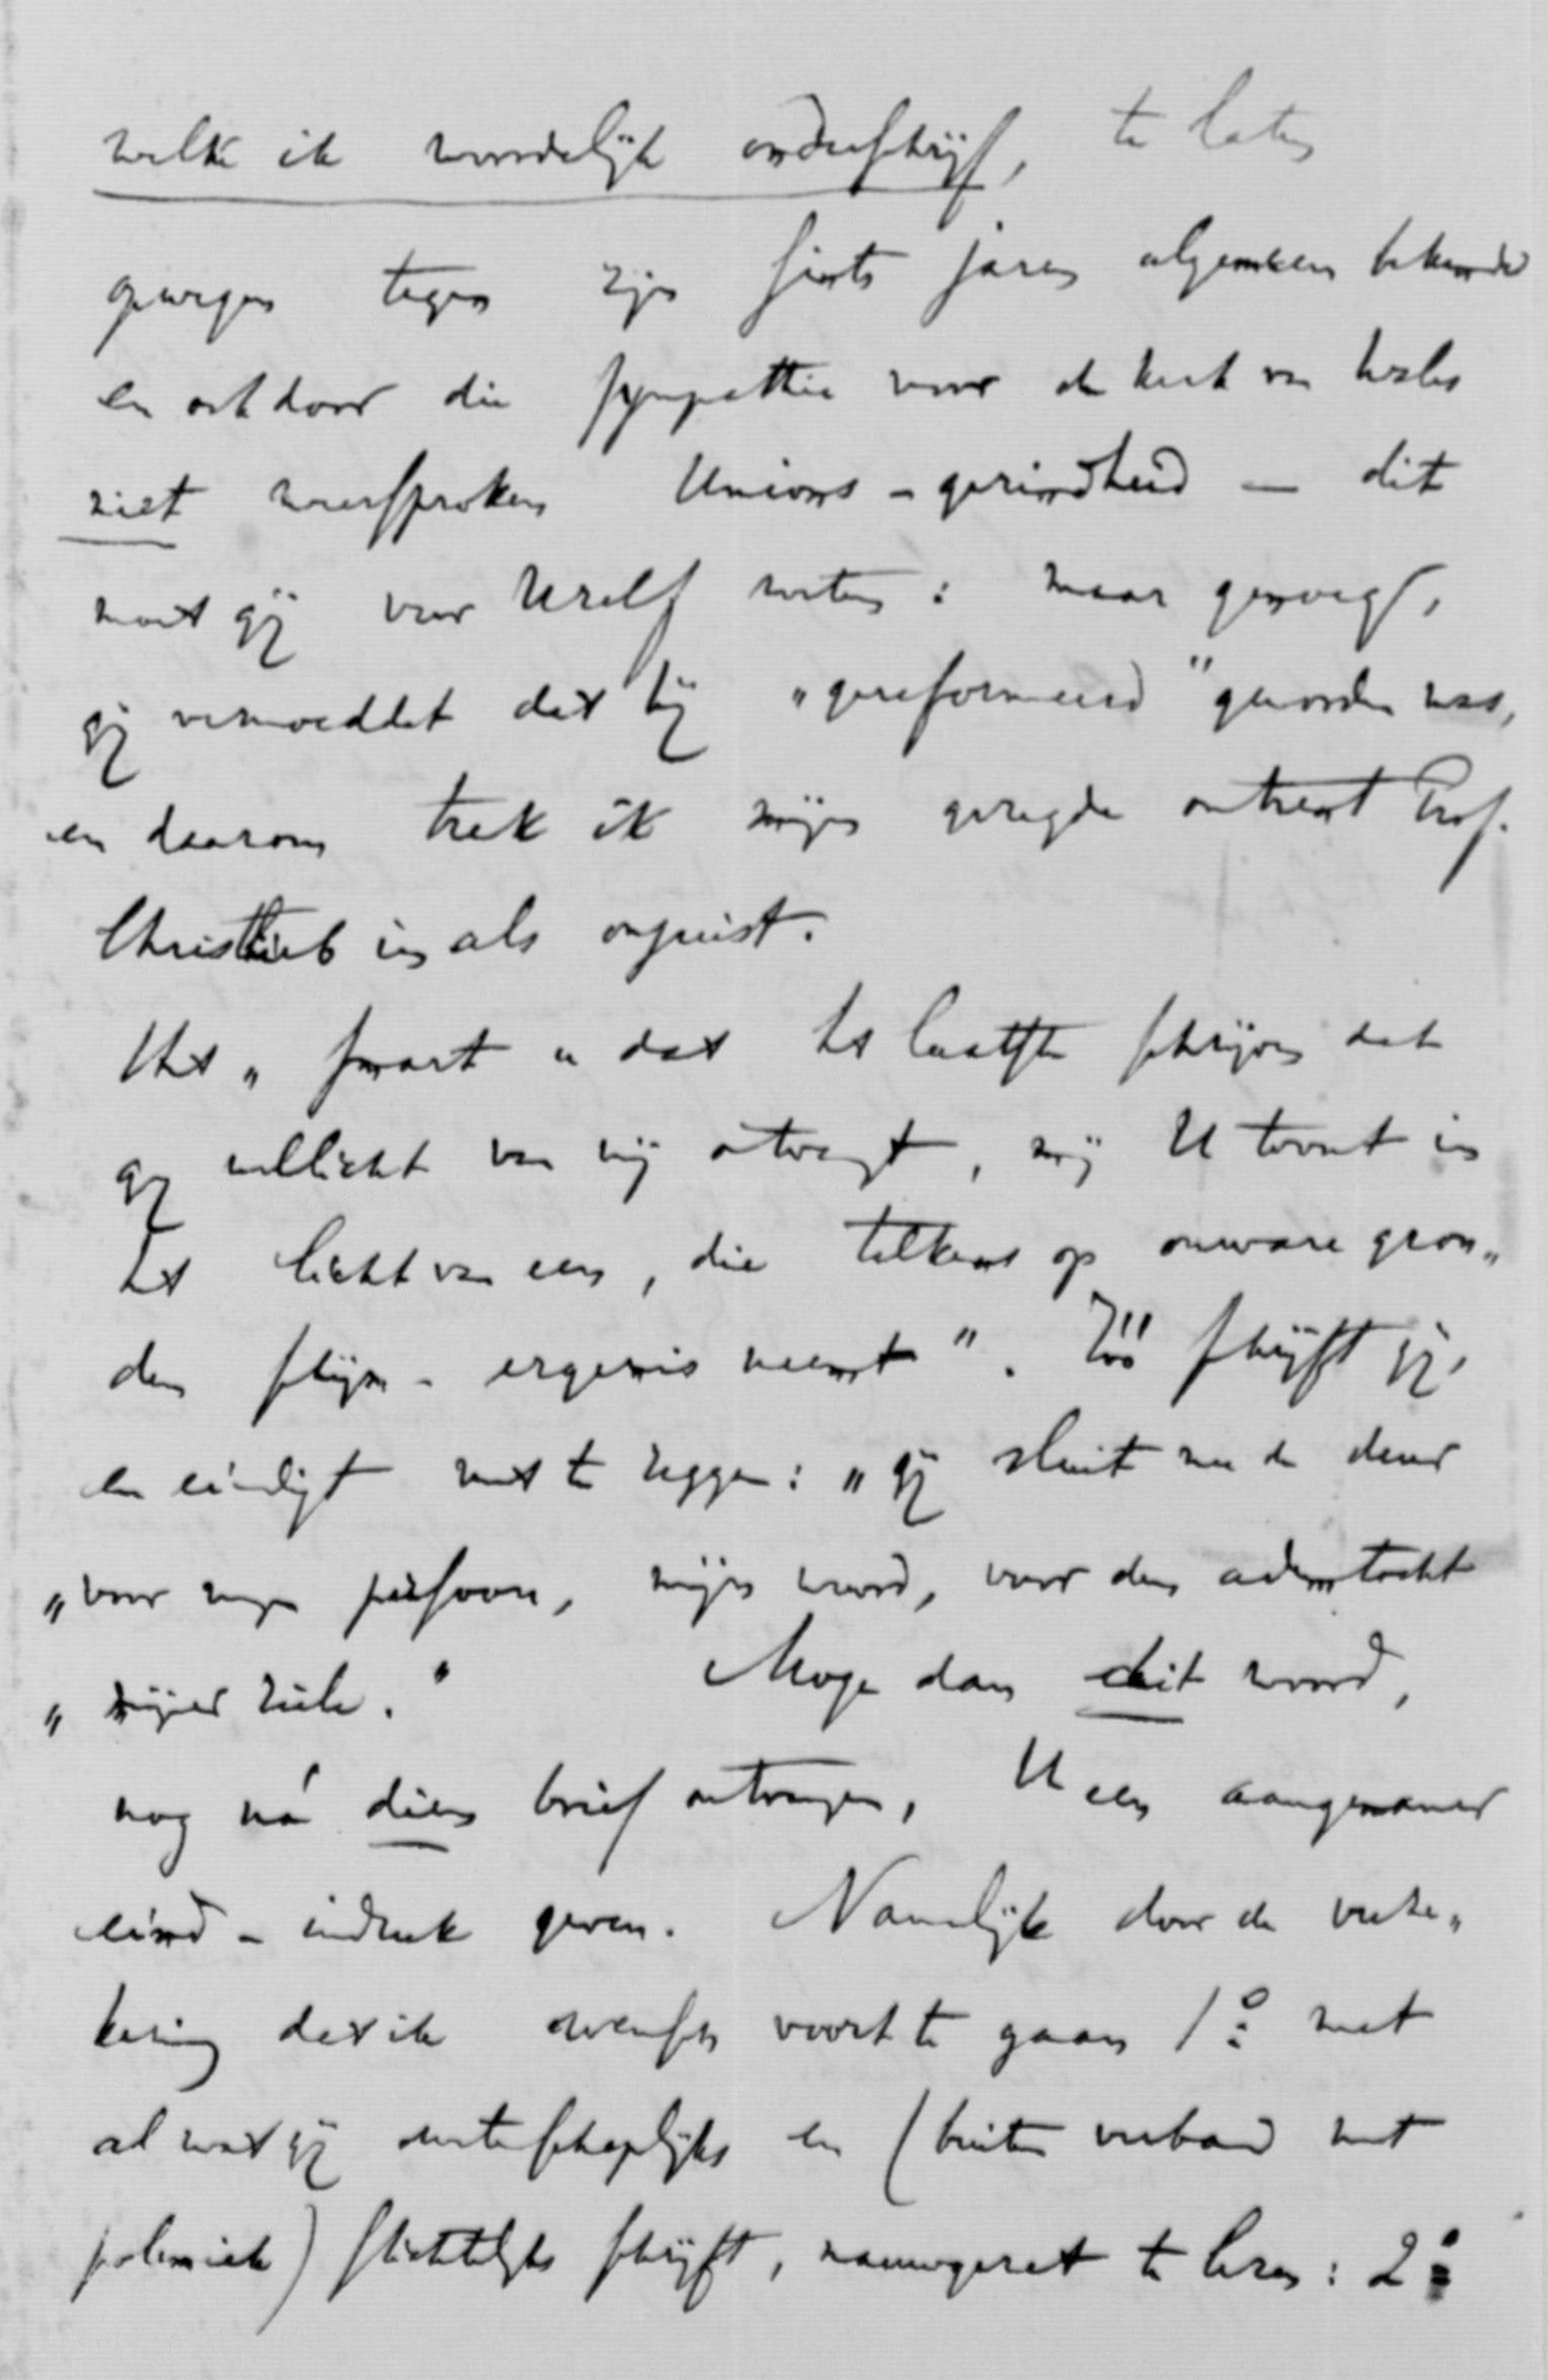 welke ik woordelijk onderschrijf, te laten
opwegen tegen zijn sints jaren algemeen bekende
en ook door die sympathie voor de kerk van Wales
niet weersproken Unions-gezindheid — dit
moet gij voor Uzelf weten: maar genoeg,
gij vermoeddet dat hij „gereformeerd" geworden was,
en daarom trek ik mijn gezegde omtrent Prof.
Christlieb in als onjuist.
Het „smart u dat het laatste schrijven dat
gij wellicht van mij ontvangt, mij U toont in
het licht van een, die telkens op onware gron„
den schijn-ergernis neemt". Zóó schrijft gij,
en eindigt met te zeggen: „gij sluit nu de deur
„voor mijn persoon, mijn woord, voor den ademtocht
„mijner ziele." Moge dan dit woord,
nog ná dien brief ontvangen, U een aangenamer
eind-indruk geven. Namelijk door de verze„
kering dat ik wensch voort te gaan 1º met
al wat gij wetenschaplijks en (buiten verband met
polemiek) stichtlijks schrijft, nauwgezet te lezen: 2º